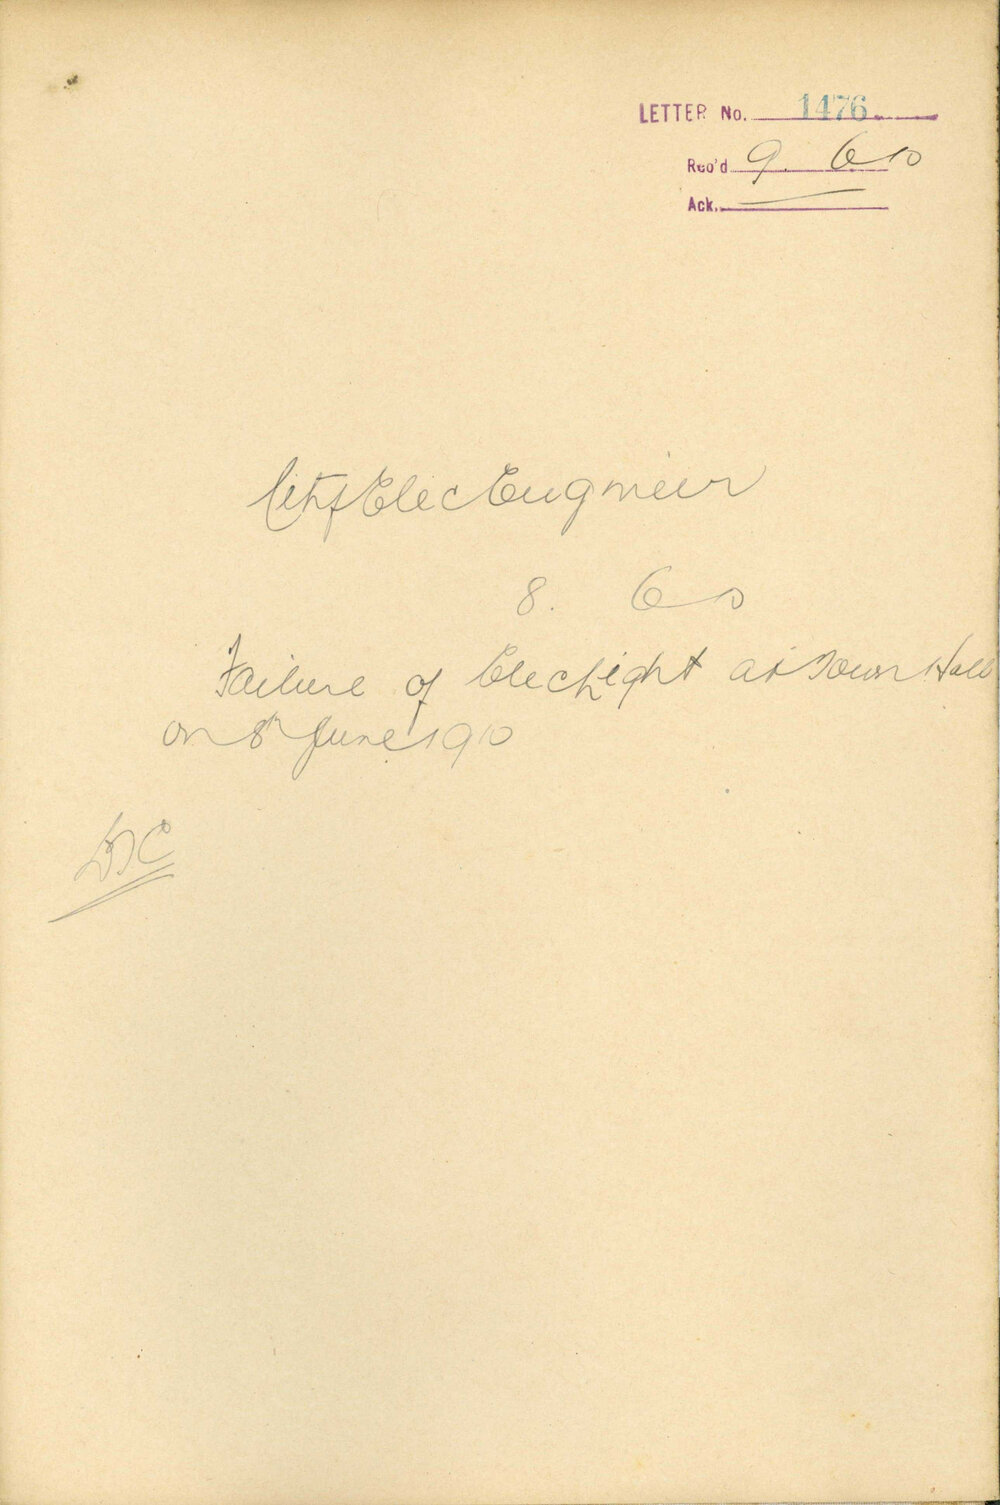 LETTER No. 1476
Rec'd 9. 6 10
Ack.
City Elec Engineer
8. 6 10
Failure of Elec Light at Town Hall
on 8th June 1910